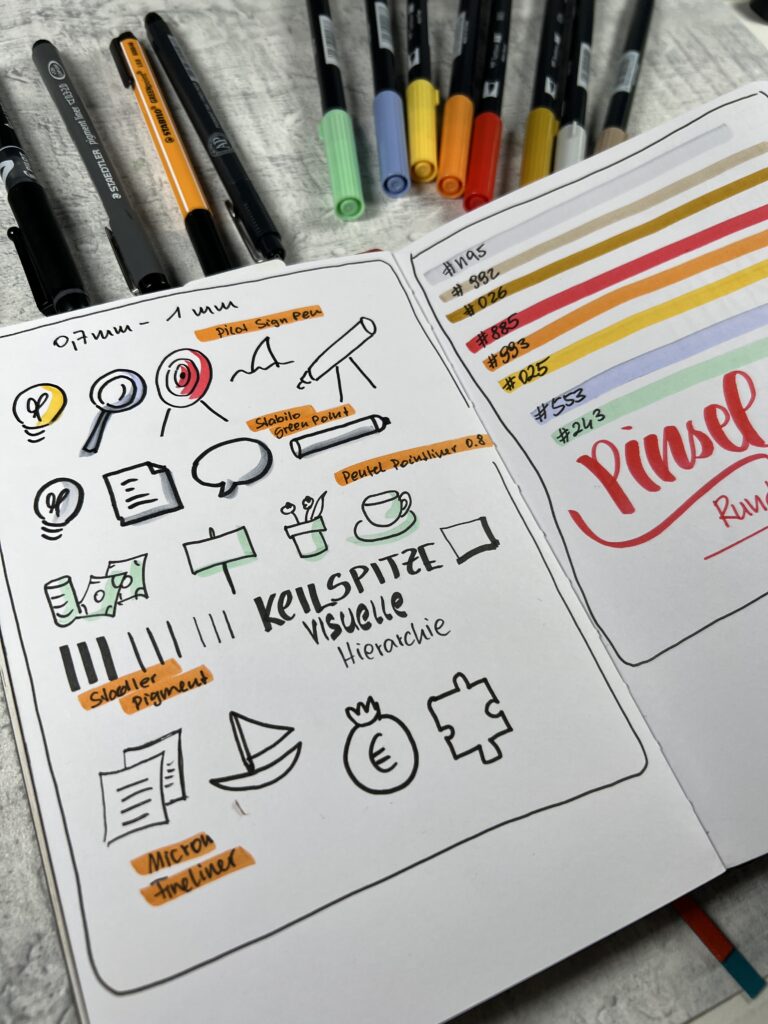 STAEDTLER pigment liner
STABILO
0,7mm - 1 mm
Pilot Sign Pen
Stabilo
Green Point
Pentel Pointliner 0.8
KEILSPITZE
VISUELLE
Hierarchie
Stadler
Pigment
€
Micron
Fineliner
#N95
#992
#026
#885
#993
#025
#553
#243
Pinsel
Rund